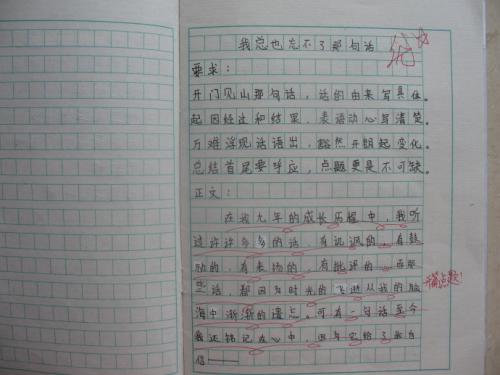 我总也忘不了那句话
优☆
要求：
开门见山那句话，话的由来写具体。
起因经过和结果，表语动心写清楚。
万难浮现话语出，豁然开朗起变化。
总结首尾要呼应，点题更是不可缺。
正文：
在我九年的成长历程中，我听
过许许多多的话，有讽刺的，有鼓
励的，有表扬的，有批评的……可那
些话，都因为时光的飞逝从我的脑
海中渐渐的遗忘。可有一句话至今
我还铭记在心中，因为它给了我自
信——
开篇点题！